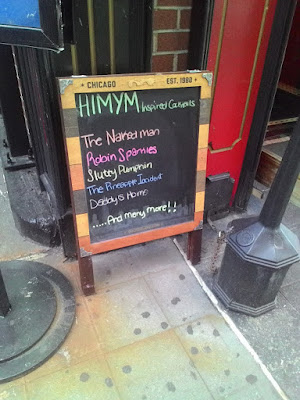 CHICAGO EST. 1980
HIMYM Inspired Cocktails
The Naked man
Robin Sparkles
Slutty Pumpkin
The Pineapple Incident
Daddy's Home
.....And many more!!